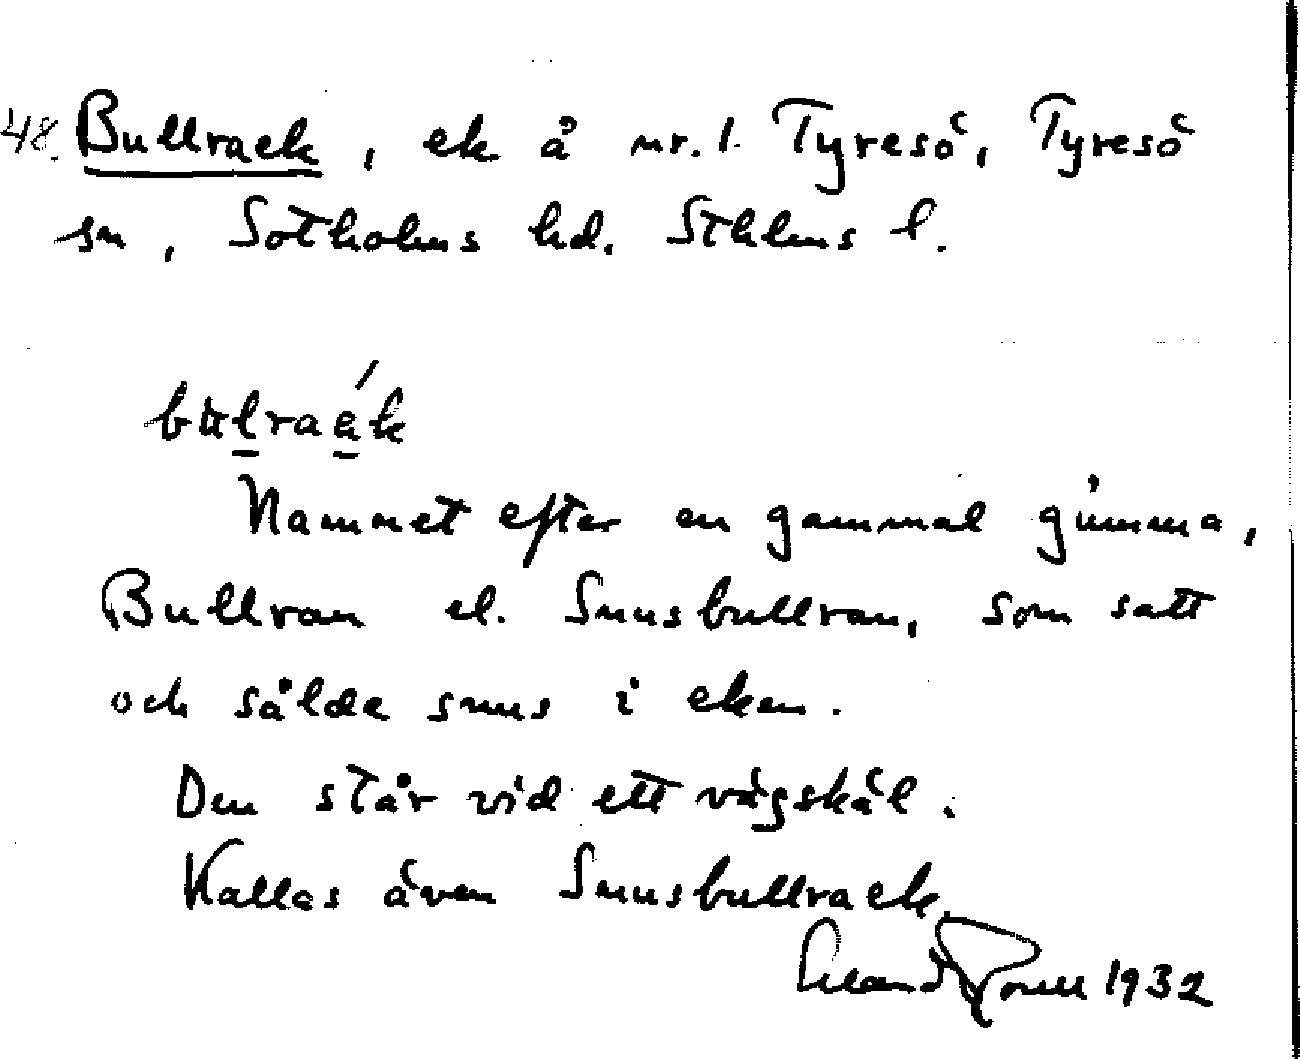 48. Bullraek, ek å nr. 1. Tyresö, Tyresö
sn, Sotholms hd. Sthlms l.
Namnet efter en gammal gumma,
Bullran el. Snusbullran, som satt
och sålde snus i eken.
Den står vid ett vägskäl.
Kallas även Snusbullraek.
1932